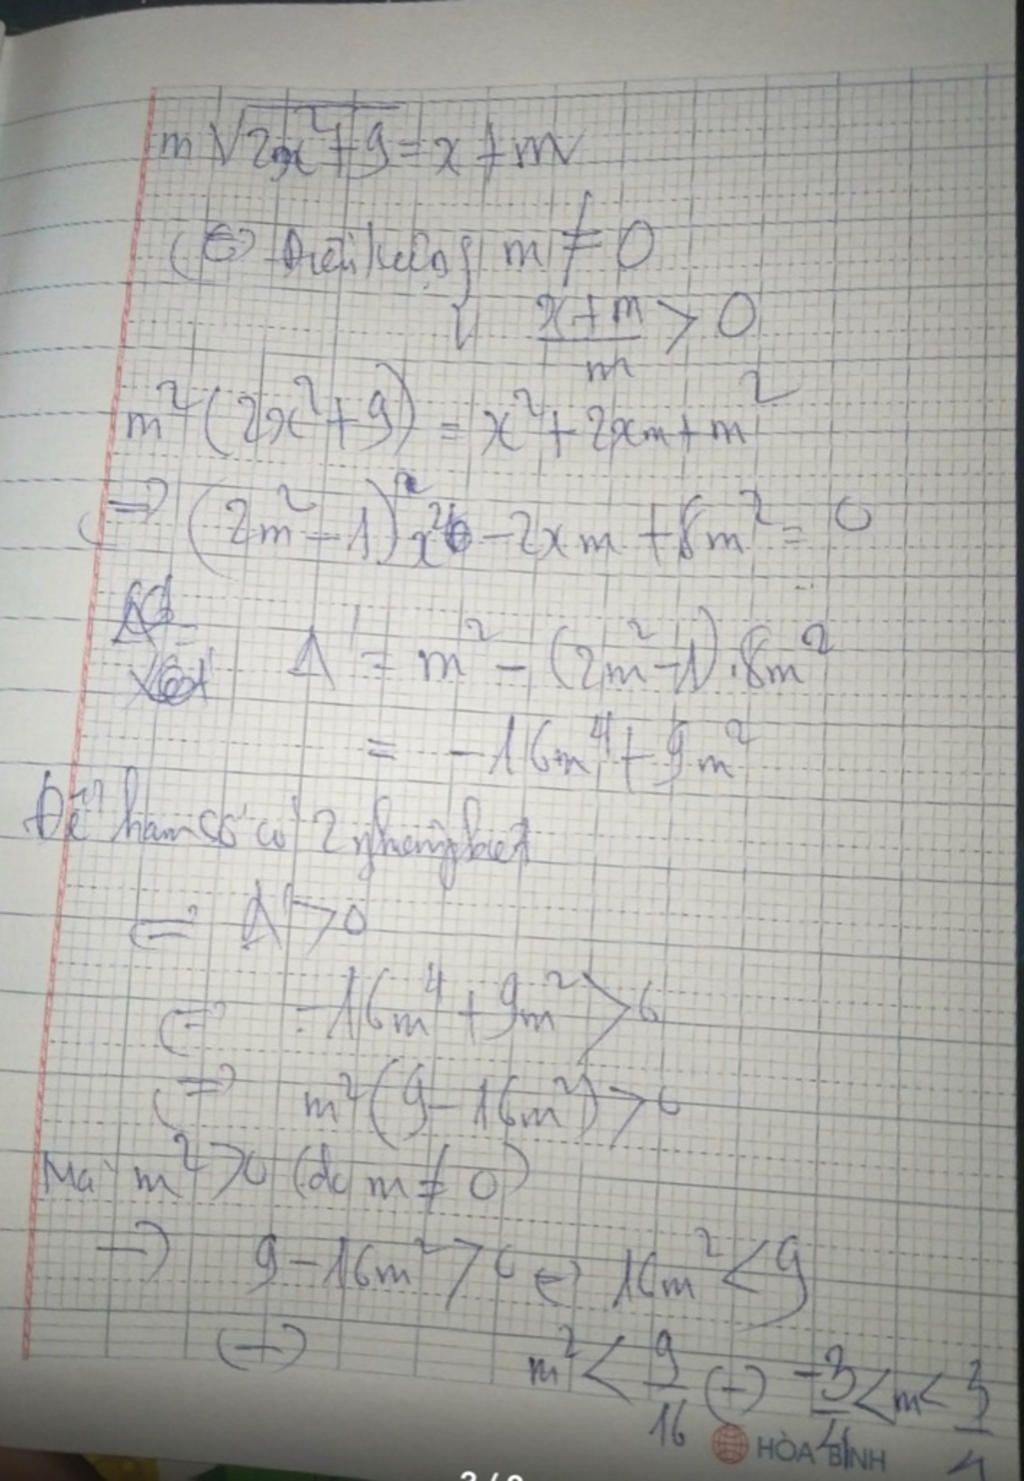 m√(2x²+9) = x + m
(⇔) Điều kiện { m ≠ 0
{ (x+m)/m > 0
m²(2x²+9) = x² + 2xm + m²
⇔ (2m² - 1)x² - 2xm + 8m² = 0
Δ' = m² - (2m²-1).8m²
= -16m⁴ + 9m²
Để hàm số có 2 phân biệt
⇔ Δ' > 0
⇔ -16m⁴ + 9m² > 0
⇔ m²(9 - 16m²) > 0
Mà m² > 0 (do m ≠ 0)
⇒ 9 - 16m² > 0 ⇔ 16m² < 9
⇔ m² < 9/16 ⇔ -3/4 < m < 3/4
HÒA BÌNH